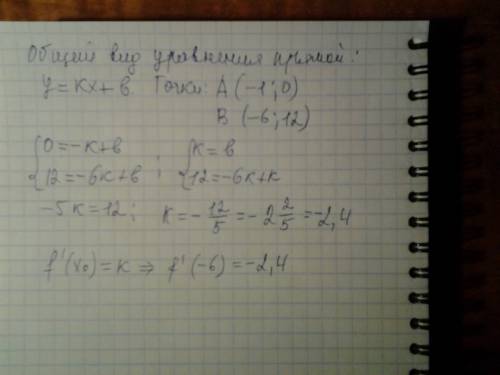 Общий вид уравнения прямой:
y = kx + b. Точки: A (-1; 0)
B (-6; 12)
{0 = -k + b ; {k = b
{12 = -6k + b {12 = -6k + k
-5k = 12; k = -12/5 = -2 2/5 = -2,4
f'(x₀) = k ⇒ f'(-6) = -2,4